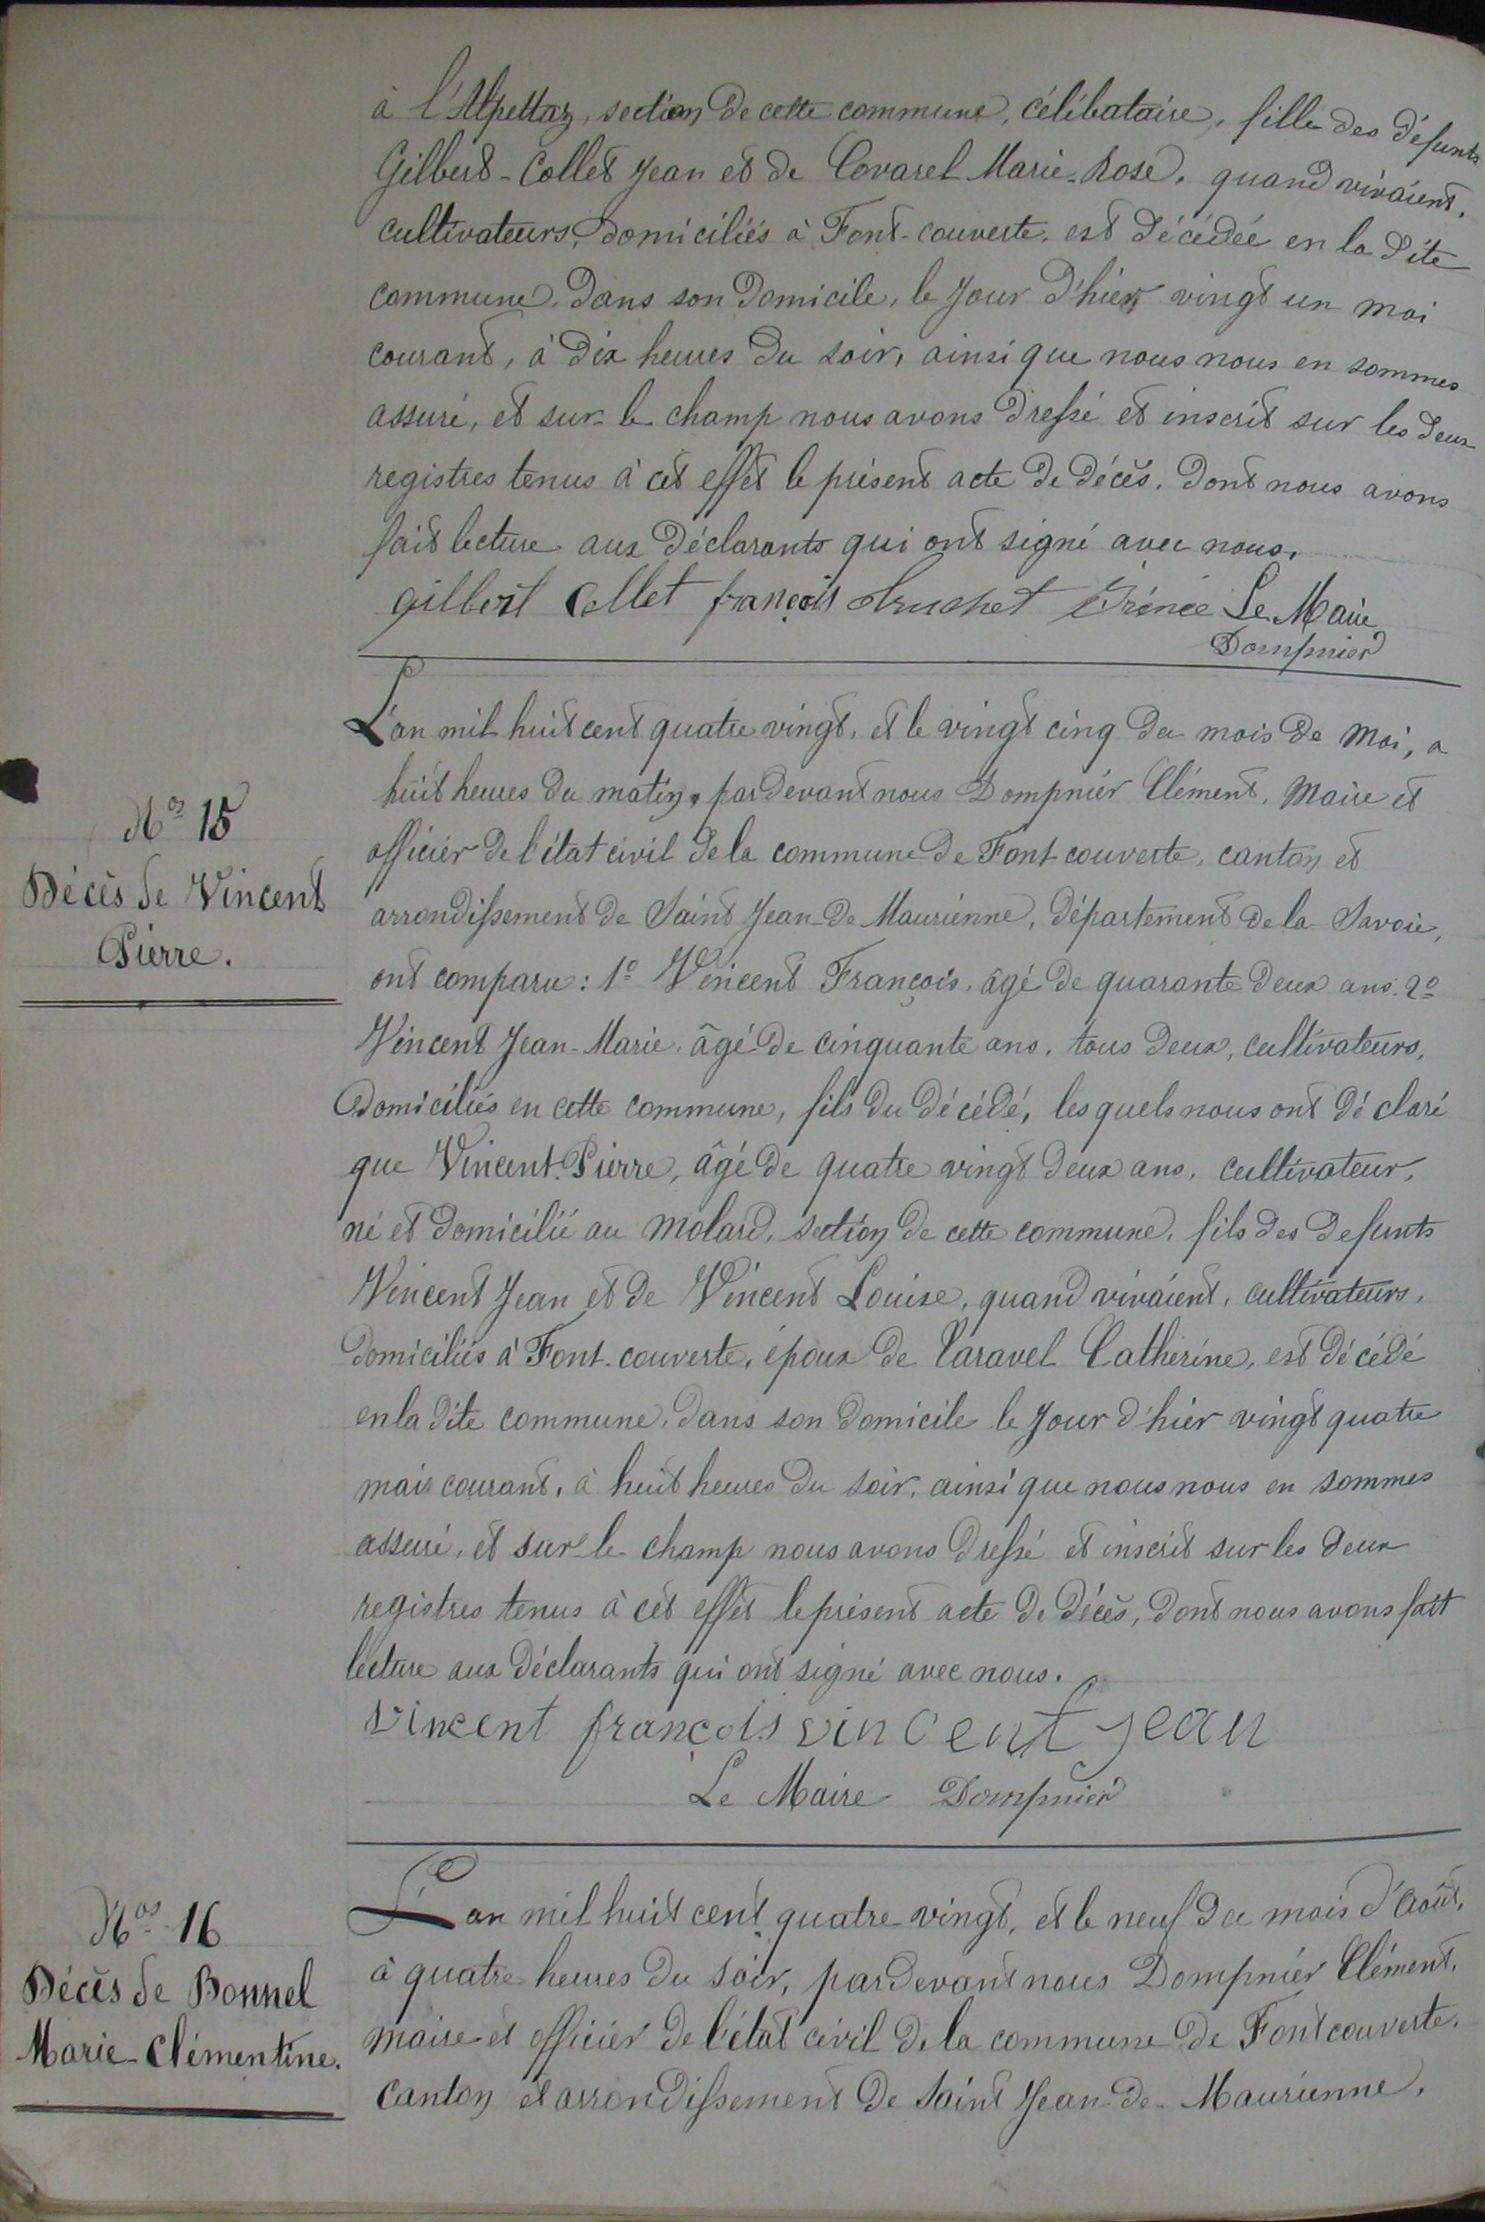 à l'Alpettaz, section de cette commune, célibataire, fille des défunts
Gilbert-Collet Jean et de Covarel Marie-Rose, quand vivaient,
cultivateurs, domiciliés à Font-couverte, est décédée en la dite
commune, dans son domicile, le jour d'hier vingt un mai
courant, à dix heures du soir, ainsi que nous nous en sommes
assuré, et sur-le-champ nous avons dressé et inscrit sur les deux
registres tenus à cet effet le présent acte de décès, dont nous avons
fait lecture aux déclarants qui ont signé avec nous.
gilbert Collet françois truchet Irénée Le Maire
Dompnier
L'an mil huit cent quatre vingt, et le vingt cinq du mois de Mai, a
huit heures du matin, par devant nous Dompnier Clément, Maire et
officier de l'état civil de la commune de Font couverte, canton et
arrondissement de Saint Jean-de Maurienne, département de la Savoie,
ont comparu : 1º Vincent François, âgé de quarante deux ans. 2º
Vincent Jean-Marie, âgé de cinquante ans, tous deux, cultivateurs,
domiciliés en cette commune, fils du décédé, lesquels nous ont déclaré
que Vincent Pierre, âgé de quatre vingt deux ans, cultivateur,
né et domicilié au Molard, section de cette commune, fils des defunts
Vincent Jean et de Vincent Louise, quand vivaient, cultivateurs,
domiciliés à Font-couverte, époux de Varavel Catherine, est décédé
en la dite commune, dans son domicile le jour d'hier vingt quatre
mai courant, à huit heures du soir, ainsi que nous nous en sommes
assuré, et sur-le-champ nous avons dressé et inscrit sur les deux
registres tenus à cet effet le présent acte de décès, dont nous avons fait
lecture aux déclarants qui ont signé avec nous.
vincent françois vincent jean
Le Maire Dompnier
Nos 15
Décès de Vincent
Pierre.
L'an mil huit cent quatre-vingt, et le neuf du mois d'Août,
à quatre heures du soir, par devant nous Dompnier Clément,
maire et officier de l'état civil de la commune de Font couverte,
canton et arrondissement de Saint Jean-de-Maurienne,
Nos 16
Décès de Bonnel
Marie-Clémentine.